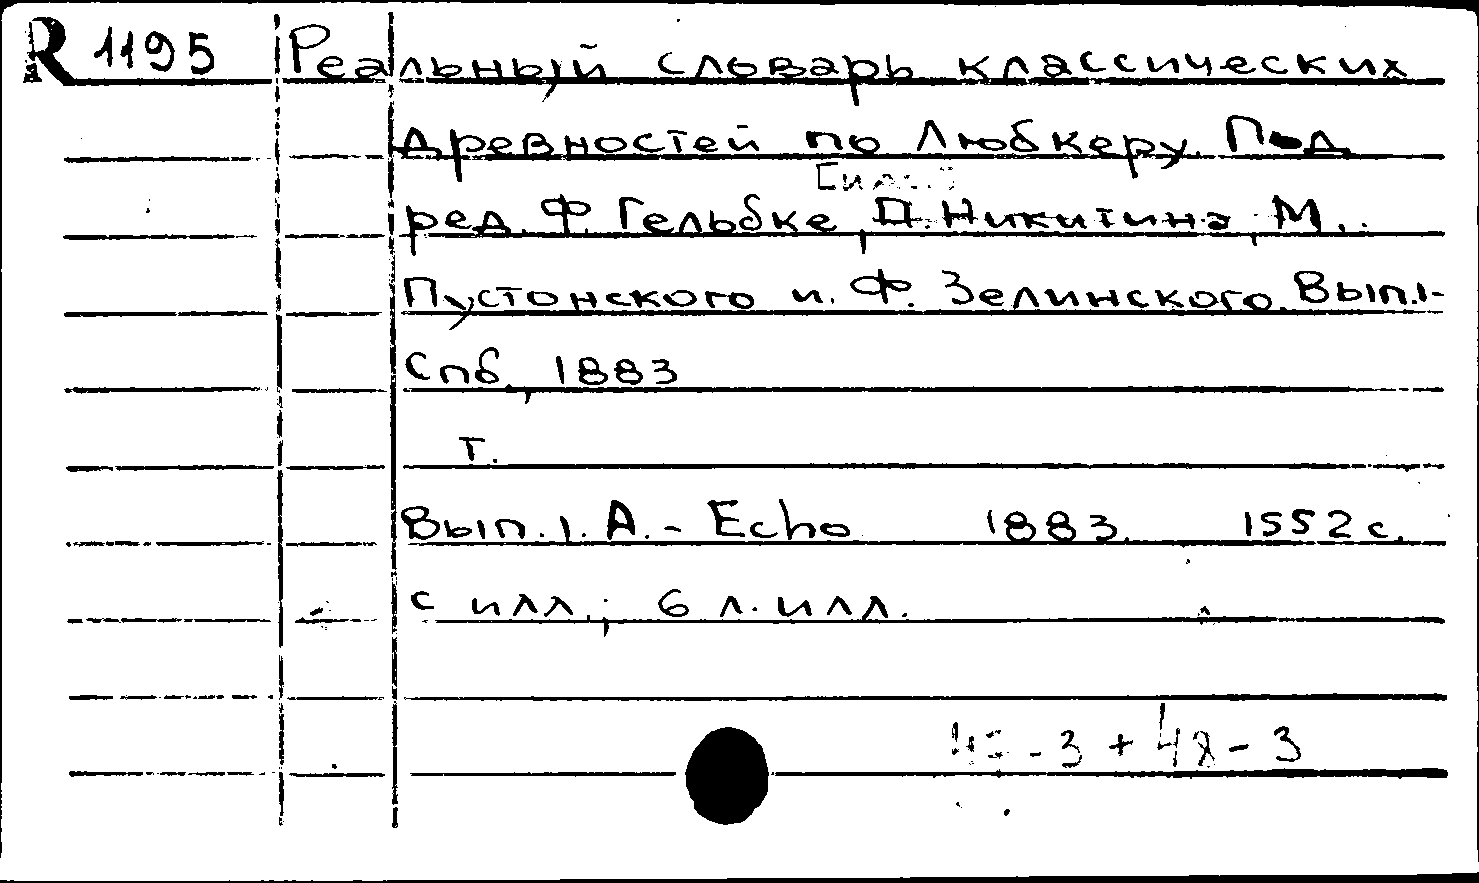 R 1195 Реальный словарь классических
древностей по Любкеру. Под
ред. Ф. Гельбке, П. Никитина, М.
Пустонского и. Ф. Зелинского. Вып.1-
Спб., 1883
т.
Вып. 1. А. - Echo 1883. 1552 с.
с илл.; 6 л. илл.
- 3 + 48 - 3